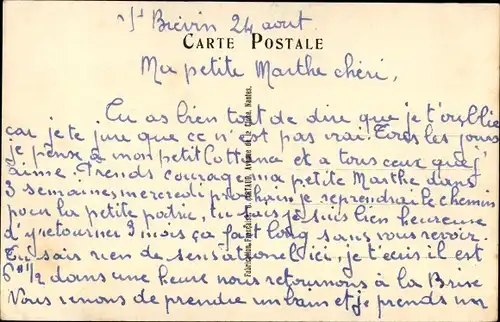 St Brévin 24 aout
CARTE POSTALE
Ma petite Marthe chéri,
Tu as bien tort de dire que je t'oublie
car je te jure que ce n'est pas vrai. Tous les jours
je pense à mon petit Cottance et a tous ceux que j'
aime. Prends courage ma petite Marthe dans
3 semaines mercredi prochain je reprendrai le chemin
pour la petite patrie, tu sais je suis bien heureuse
d'y retourner 3 mois ça fait long sans vous revoir.
Tu sais rien de sensationnel ici, je t'écris il est
6 H 1/2 dans une heure nous retournons à la Brise
Nous venons de prendre un bain et je prends mon
Fabrication Française Nantes.